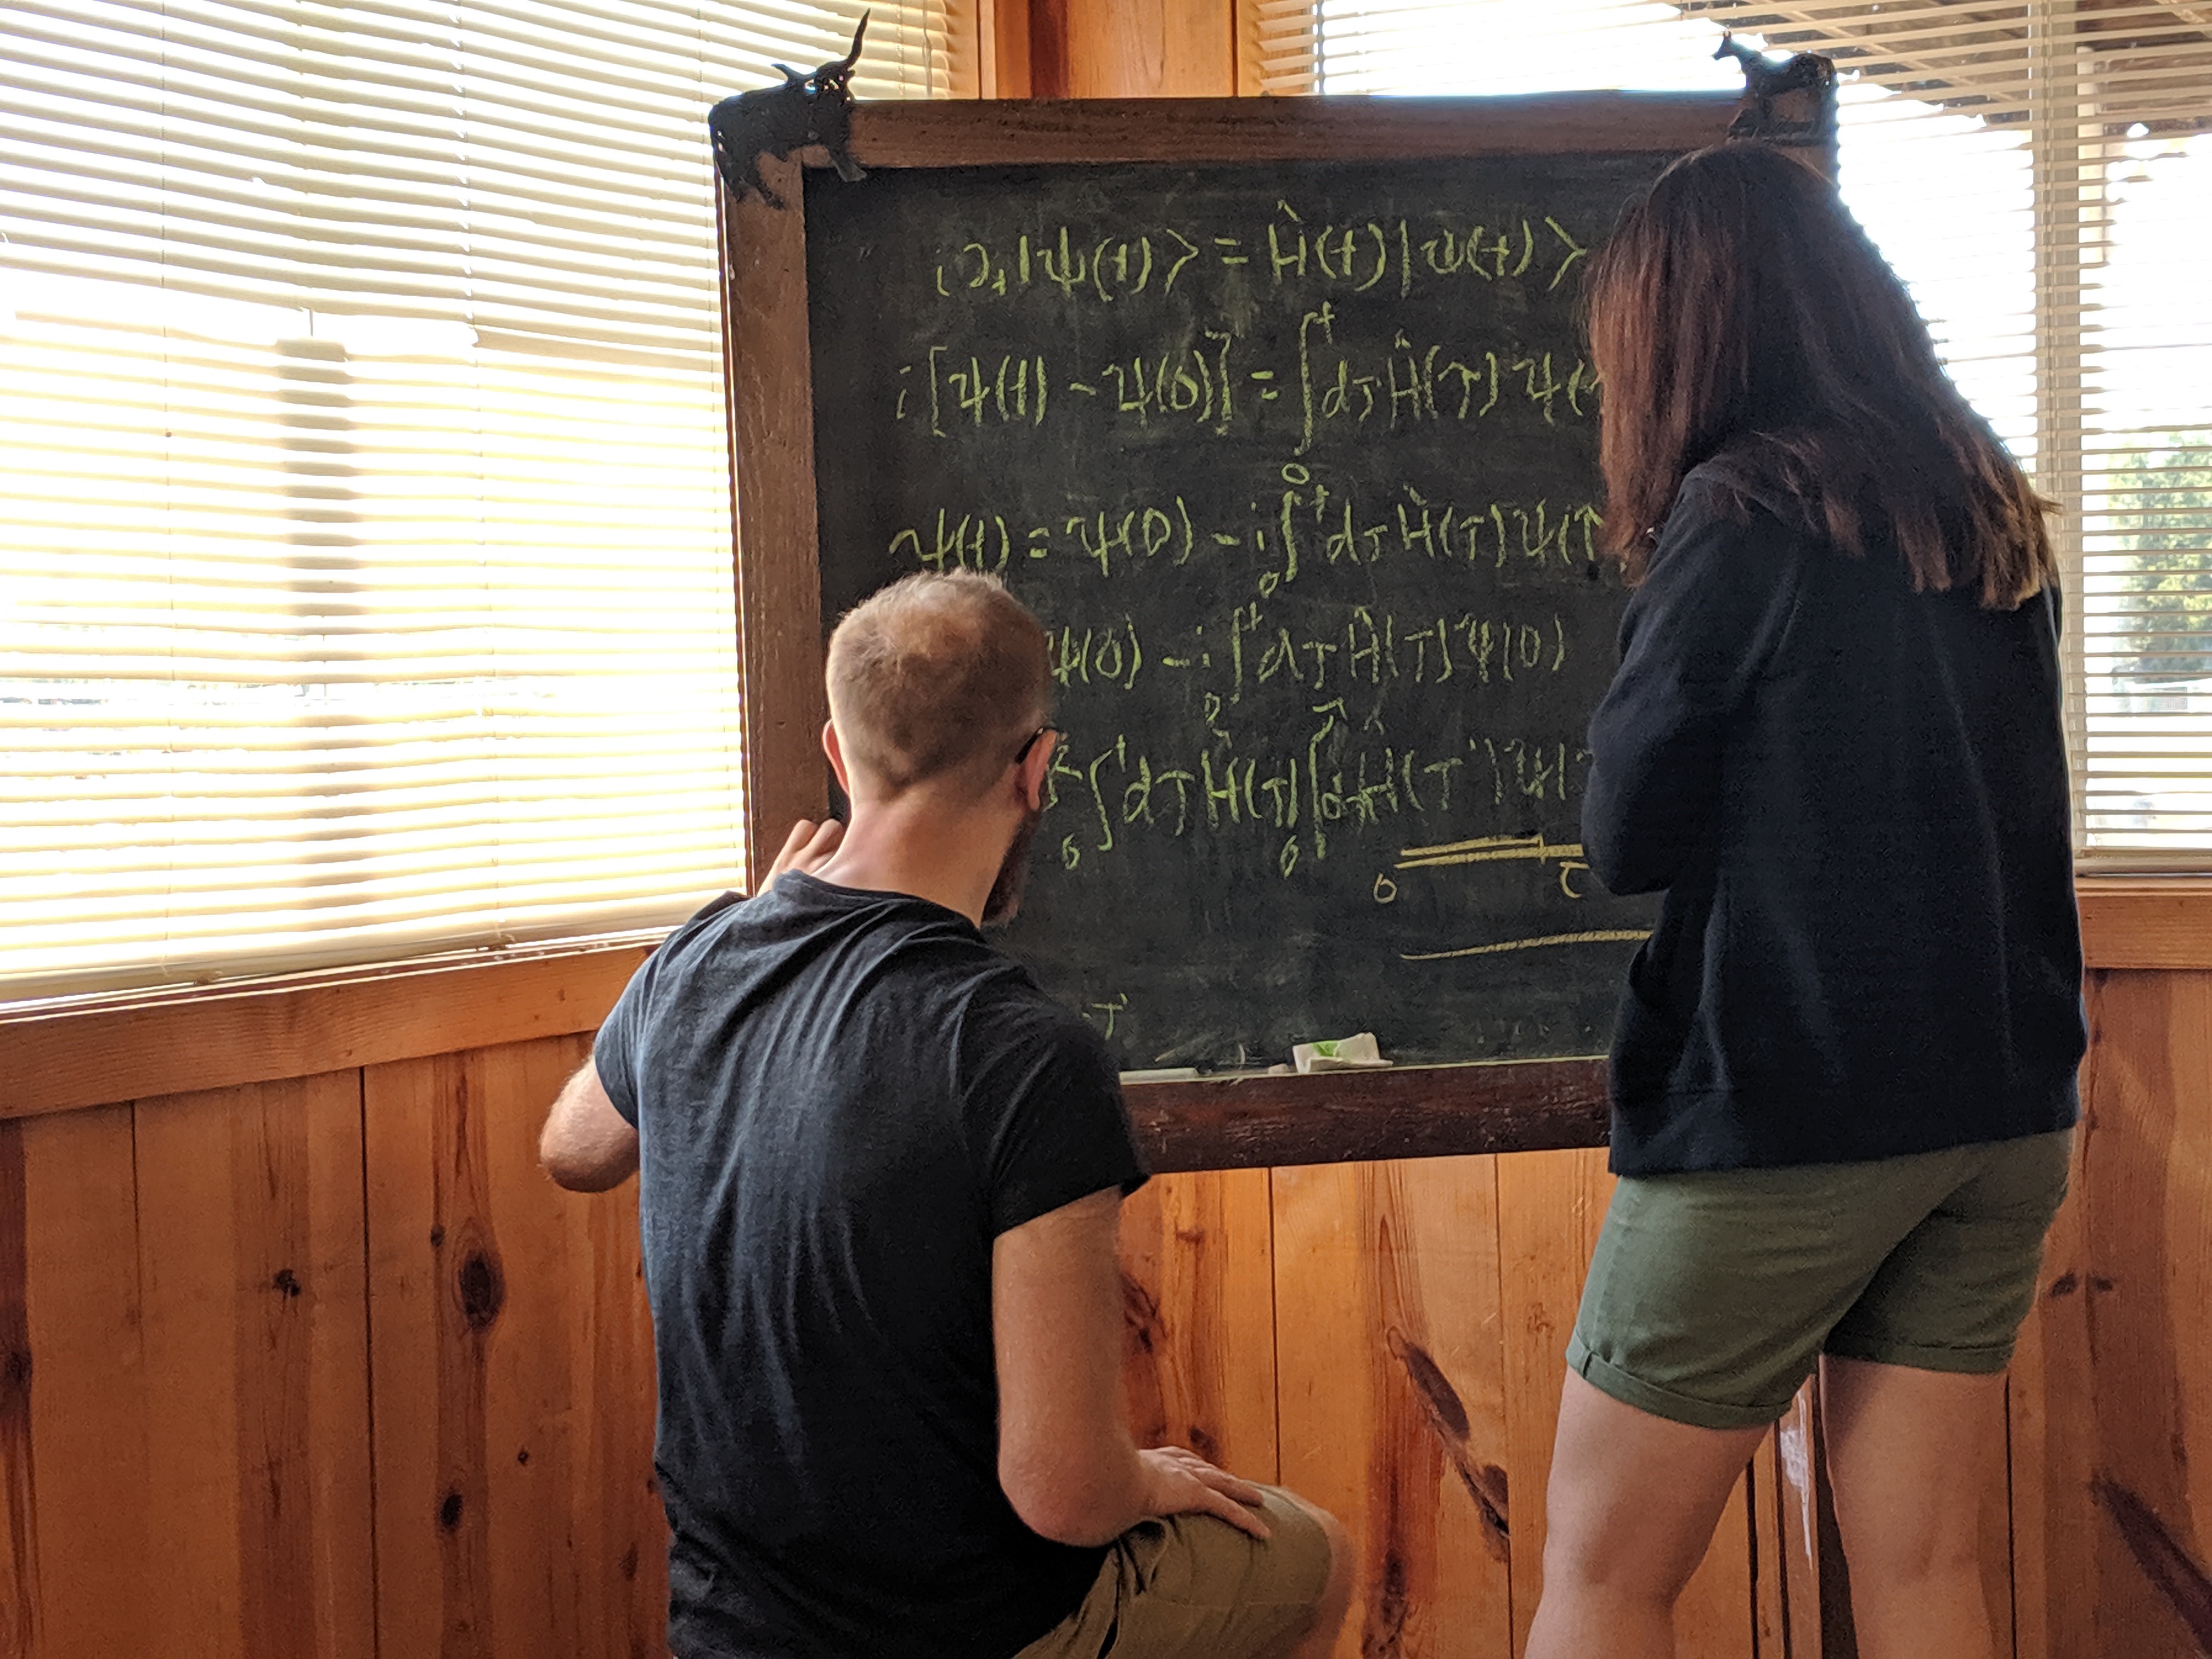 i∂ₜ|ψ(t)⟩ = Ĥ(t)|ψ(t)⟩
i[ψ(t) - ψ(0)] = ∫₀ᵗ dτ Ĥ(τ) ψ(
ψ(t) = ψ(0) - i∫₀ᵗ dτ Ĥ(τ) ψ(τ
ψ(0) - i∫₀ᵗ dτ Ĥ(τ) ψ(0)
∫₀ᵗ dτ Ĥ(τ) ∫₀^τ dτ' Ĥ(τ') ψ(
0 τ
τ'